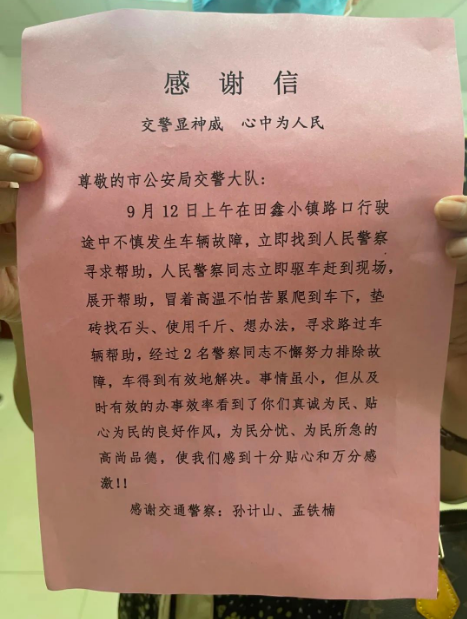 感谢信
交警显神威 心中为人民
尊敬的市公安局交警大队：
9月12日上午在田鑫小镇路口行驶
途中不慎发生车辆故障，立即找到人民警察
寻求帮助，人民警察同志立即驱车赶到现场，
展开帮助，冒着高温不怕苦累爬到车下，垫
砖找石头、使用千斤、想办法，寻求路过车
辆帮助，经过2名警察同志不懈努力排除故
障，车得到有效地解决。事情虽小，但从及
时有效的办事效率看到了你们真诚为民、贴
心为民的良好作风，为民分忧、为民所急的
高尚品德，使我们感到十分贴心和万分感
激!!
感谢交通警察：孙计山、孟铁楠